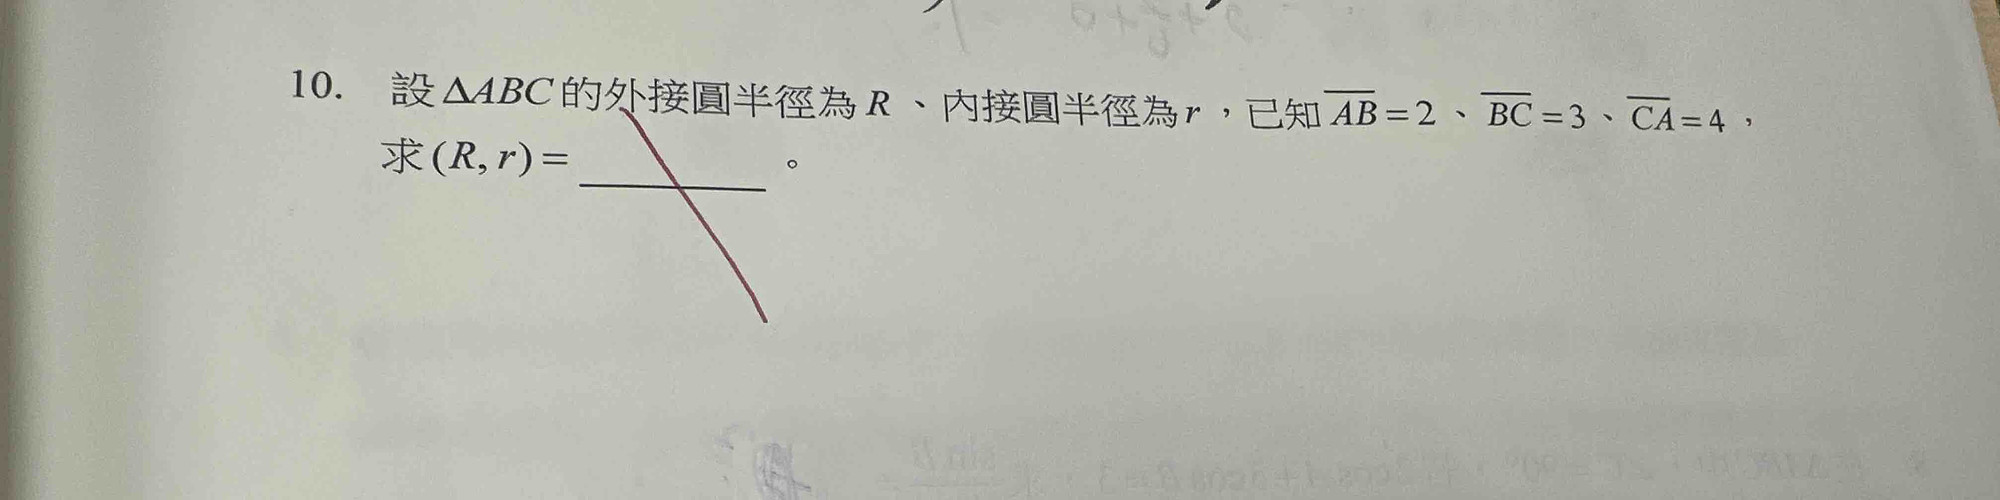 10. 設 ΔABC 的外接圓半徑為 R 、內接圓半徑為 r ，已知 \overline{AB} = 2 、 \overline{BC} = 3 、 \overline{CA} = 4 ，
求 (R, r) = ________ 。